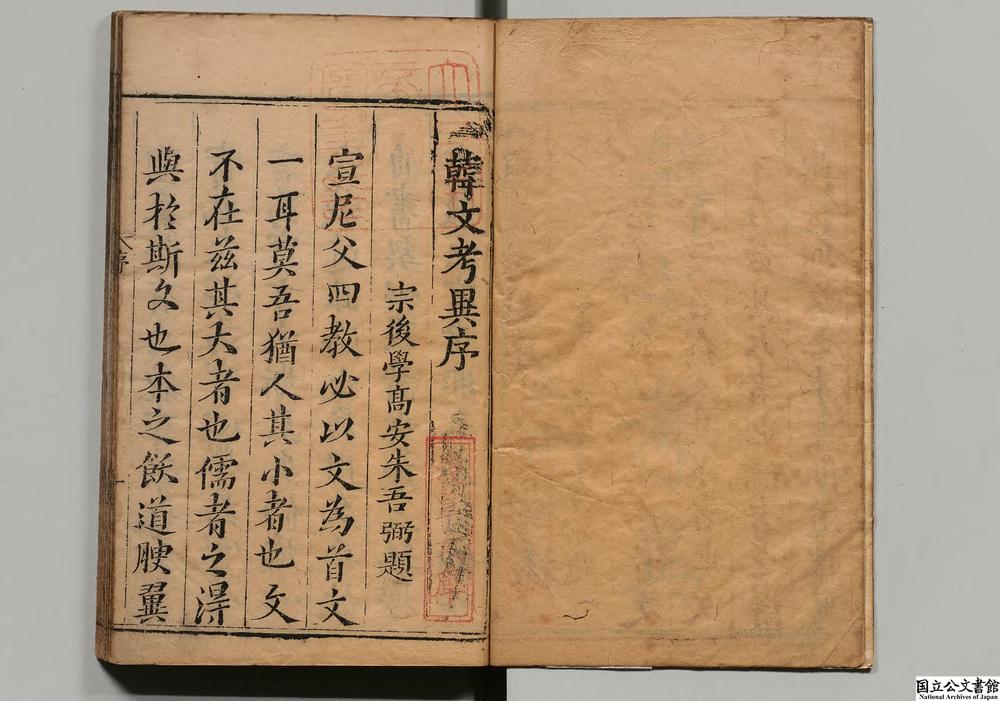 韓文考異序
宗後學髙安朱吾弼題
宣尼父四教必以文為首文
一耳莫吾猶人其小者也文
不在兹其大者也儒者之得
與於斯文也本之飫道腴翼
序
国立公文書館
National Archives of Japan